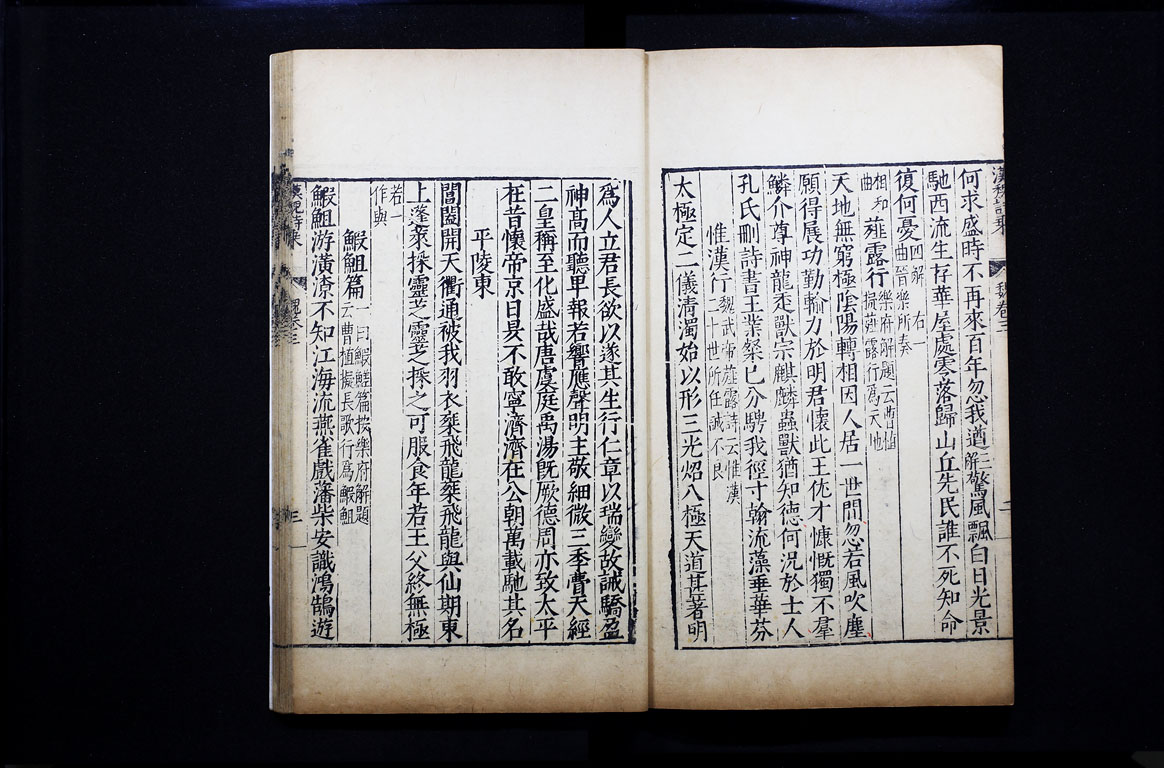 漢魏詩乘 魏卷三 二
何求盛時不再來百年忽我遒三解驚風飄白日光景
馳西流生存華屋處零落歸山丘先民誰不死知命
復何憂四解 右一曲晉樂所奏
相和曲 薤露行 樂府解題云曹植擬薤露行為天地
天地無窮極陰陽轉相因人居一世間忽若風吹塵
願得展功勤輸力於明君懷此王佐才慷慨獨不羣
鱗介尊神龍走獸宗麒麟蟲獸猶知德何況於士人
孔氏刪詩書王業粲已分騁我徑寸翰流藻垂華芬
惟漢行 魏武帝薤露詩云惟漢二十世所任誠不良
太極定二儀清濁始以形三光炤八極天道甚著明
為人立君長欲以遂其生行仁章以瑞變故誡驕盈
神高而聽卑報若響應聲明主敬細微三季瞢天經
二皇稱至化盛哉唐虞庭禹湯旣厥德周亦致太平
在昔懷帝京日昃不敢寧濟濟在公朝萬載馳其名
平陵東
閶闔開天衢通被我羽衣乗飛龍乗飛龍與仙期東
上蓬萊採靈芝靈芝採之可服食年若王父終無極
若一作與
鰕䱇篇 一曰鰕鱔篇按樂府解題云曹植擬長歌行爲鰕䱇
鰕䱇游潢潦不知江海流燕雀戲藩柴安識鴻鵠遊
漢魏詩乘 魏卷三 三